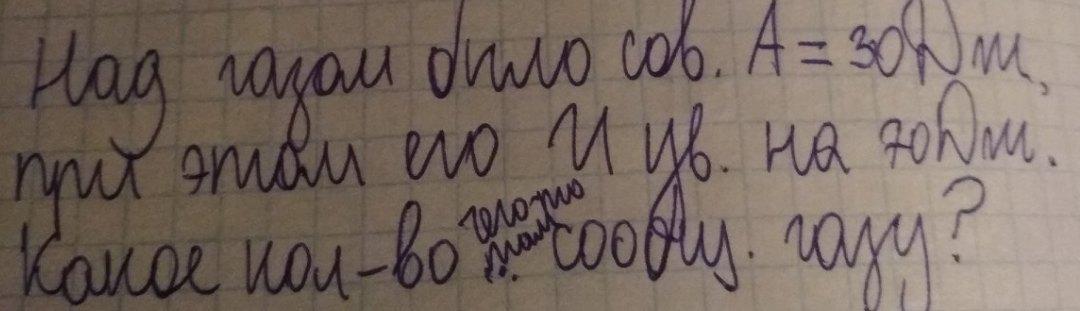 Над газом было сов. А = 30 Дж,
при этом его U ув. на 70 Дж.
Какое кол-во чего-то там сообщ. газу?